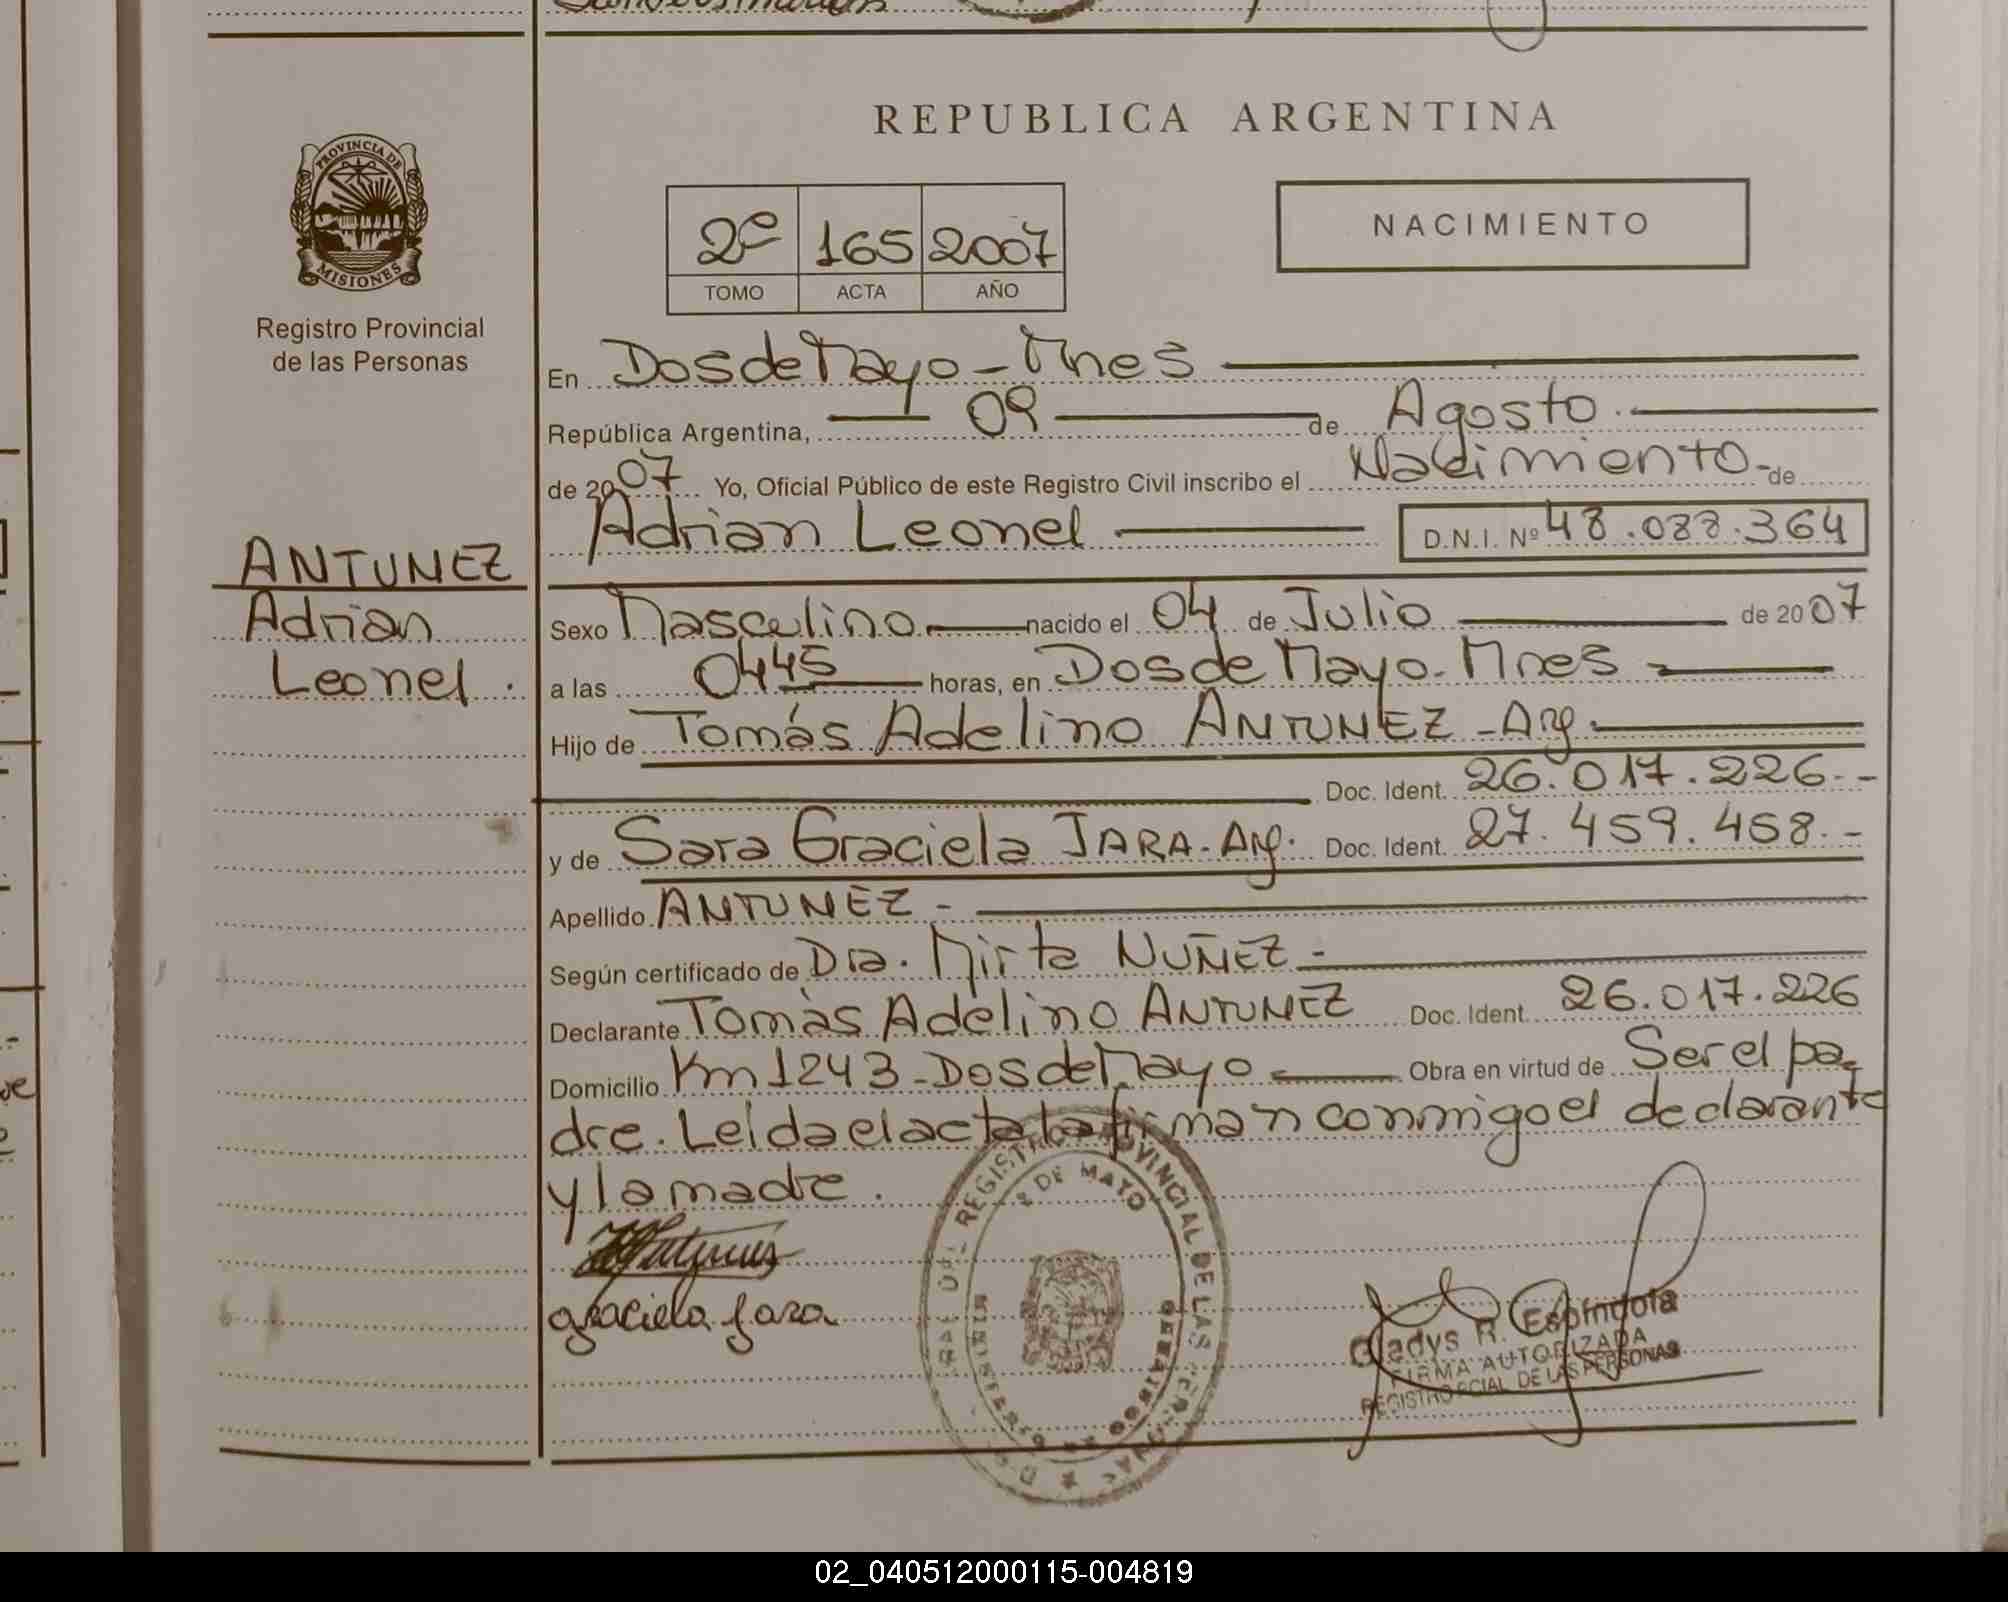 REPUBLICA ARGENTINA
PROVINCIA DE
MISIONES
Registro Provincial
de las Personas
2º 165 2007
TOMO ACTA AÑO
NACIMIENTO
En Dos de Mayo - Mnes
República Argentina, 09 de Agosto
de 2007 Yo, Oficial Público de este Registro Civil inscribo el Nacimiento - de
Adrian Leonel D.N.I. Nº 48.088.364
ANTUNEZ
Adrian
Leonel.
Sexo Masculino nacido el 04 de Julio de 2007
a las 0445 horas, en Dos de Mayo. Mnes
Hijo de Tomás Adelino ANTUNEZ - Arg.
Doc. Ident. 26.017.226.-
y de Sara Graciela JARA. Arg. Doc. Ident. 27.459.458.-
Apellido ANTUNEZ -
Según certificado de Dra. Mirta NUÑEZ -
Declarante Tomàs Adelino ANTUNEZ Doc. Ident. 26.017.226
Domicilio Km 1243 - Dos de Mayo Obra en virtud de Ser el pa-
dre. Leida el acta la firman conmigo el declarante
y la madre.
graciela Jara
REGISTRO PROVINCIAL DE LAS PERSONAS
2 DE MAYO
MINISTERIO DE GOBIERNO
Gladys R. Espíndola
FIRMA AUTORIZADA
REGISTRO PCIAL DE LAS PERSONAS
02_040512000115-004819